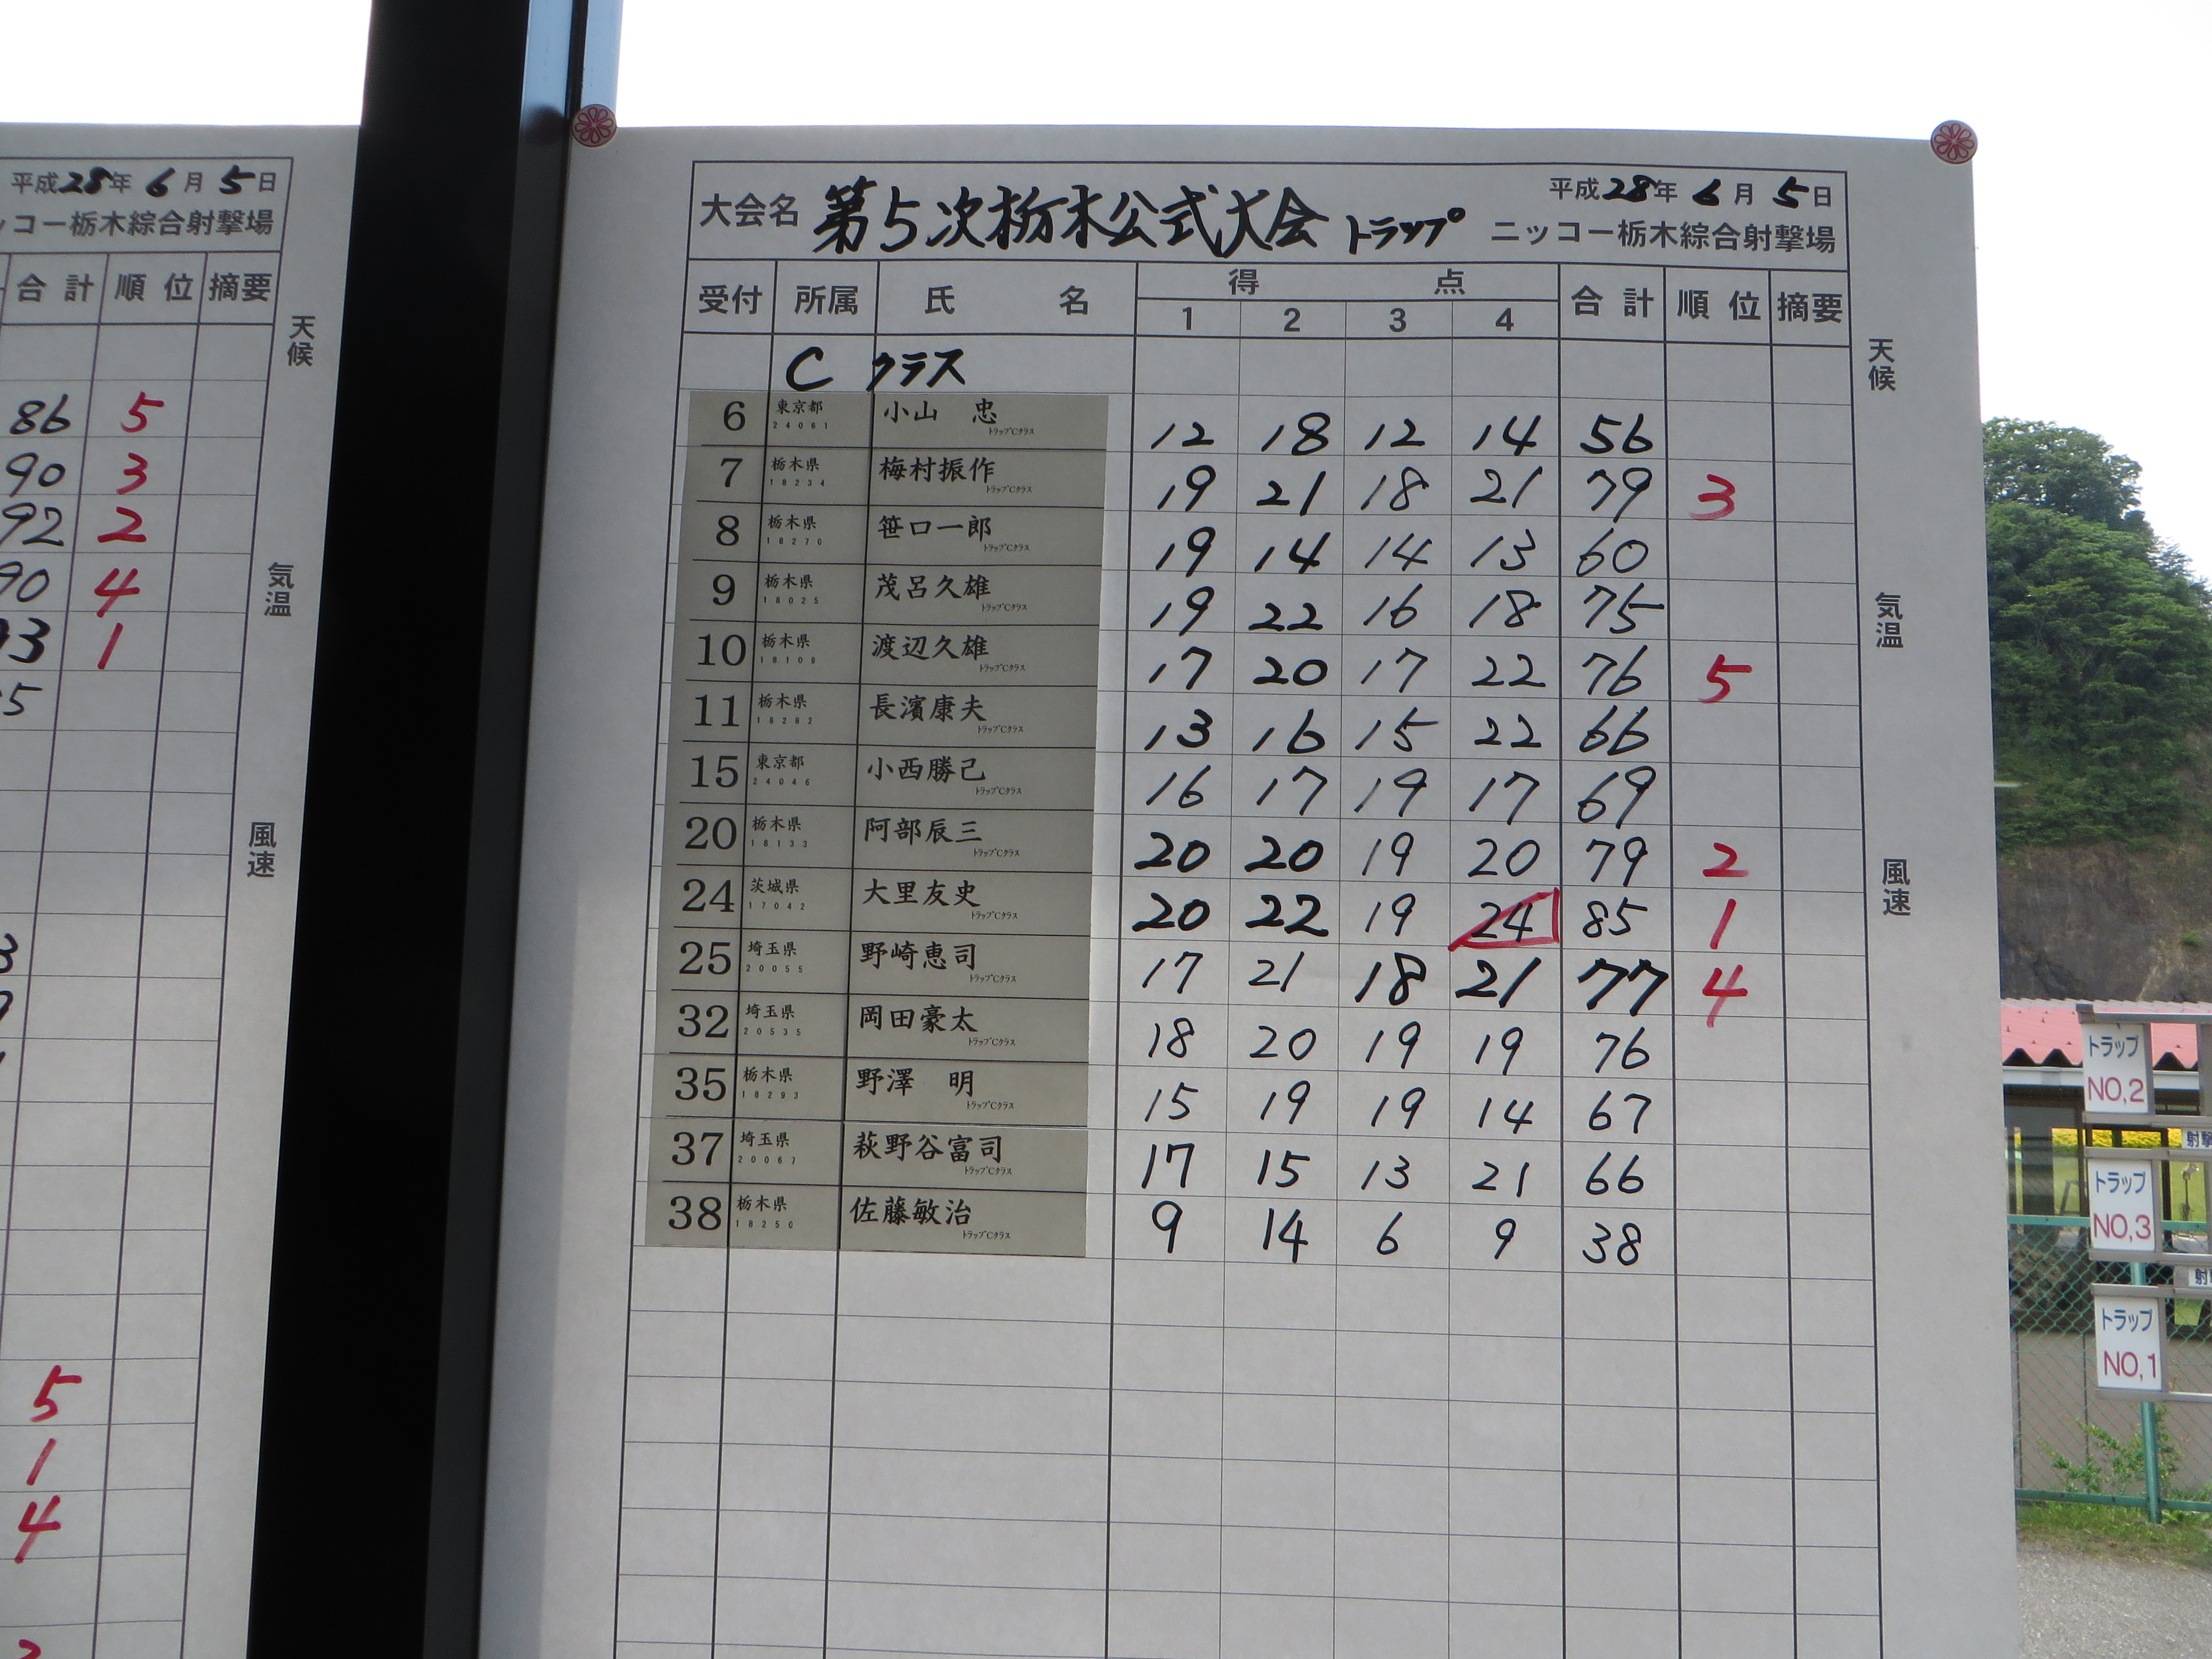 平成28年 6月 5日
ッコー栃木綜合射撃場
合計 順位 摘要
86 5
90 3
92 2
90 4
93 1
5
天候
気温
風速
5
1
4
大会名 第5次栃木公式大会 トラップ
平成28年 6月 5日
ニッコー栃木綜合射撃場
受付 所属 氏名 得点 合計 順位 摘要
1 2 3 4
Cクラス
6 東京都 24061 小山 忠 トラップCクラス 12 18 12 14 56
7 栃木県 18234 梅村振作 トラップCクラス 19 21 18 21 79 3
8 栃木県 18270 笹口一郎 トラップCクラス 19 14 14 13 60
9 栃木県 18025 茂呂久雄 トラップCクラス 19 22 16 18 75
10 栃木県 18109 渡辺久雄 トラップCクラス 17 20 17 22 76 5
11 栃木県 18282 長濱康夫 トラップCクラス 13 16 15 22 66
15 東京都 24046 小西勝己 トラップCクラス 16 17 19 17 69
20 栃木県 18133 阿部辰三 トラップCクラス 20 20 19 20 79 2
24 茨城県 17042 大里友史 トラップCクラス 20 22 19 24 85 1
25 埼玉県 20055 野崎恵司 トラップCクラス 17 21 18 21 77 4
32 埼玉県 20535 岡田豪太 トラップCクラス 18 20 19 19 76
35 栃木県 18293 野澤 明 トラップCクラス 15 19 19 14 67
37 埼玉県 20067 萩野谷富司 トラップCクラス 17 15 13 21 66
38 栃木県 18250 佐藤敏治 トラップCクラス 9 14 6 9 38
天候
気温
風速
トラップ
NO,2
トラップ
NO,3
トラップ
NO,1